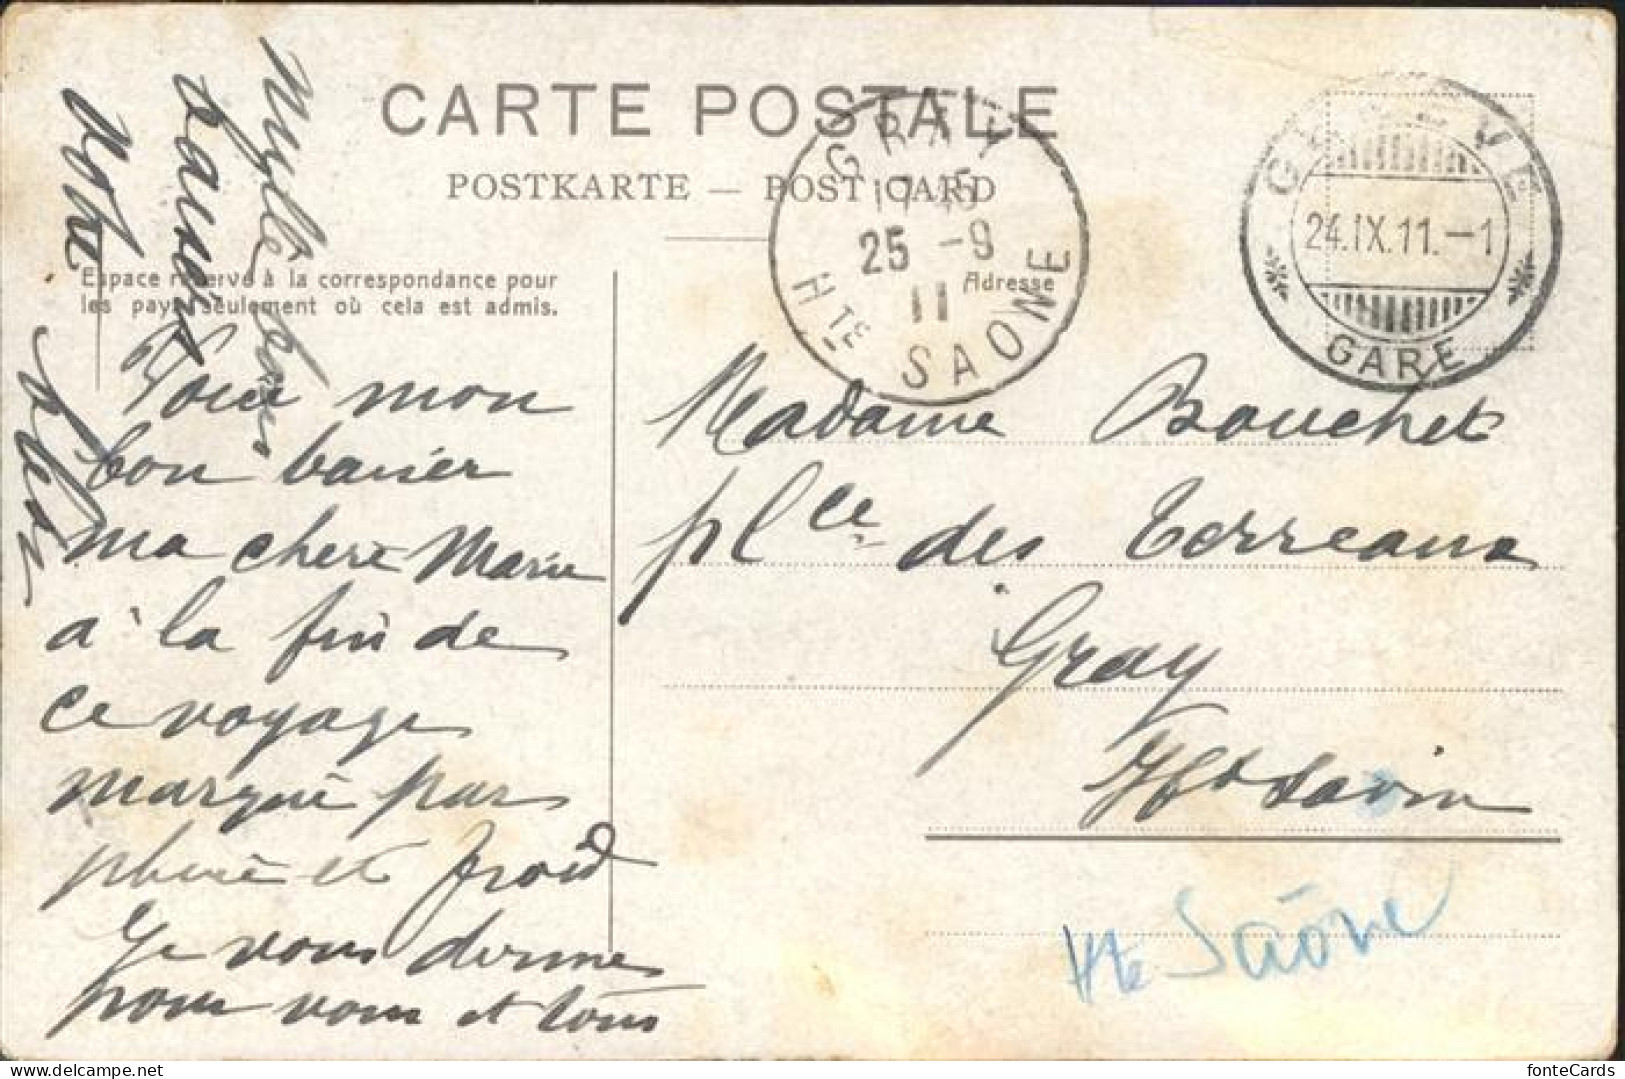 CARTE POSTALE
POSTKARTE — POST CARD
Espace réservé à la correspondance pour
les pays seulement où cela est admis.
Adresse
GRAY
25 -9
11
Hte SAONE
GENÈVE
24.IX.11.-1
GARE
Madame Bouchet
plce des Terreaux
Gray
Hte Saône
mon
bon baiser
ma chère Marie
à la fin de
ce voyage
par
et froid
Je vous donne
pour vous et tous
mille
Votre
fonteCards